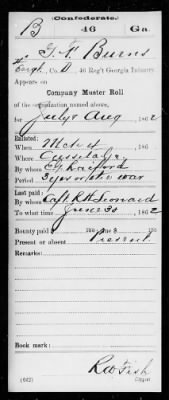 (Confederate.)
B 46 Ga.
G. F. Burns
Co. D, 46 Reg't Georgia Infantry
Appears on
Company Muster Roll
of the organization named above,
for July & Aug, 1862
Enlisted:
When Mch 4, 186
Where Cusseta, Ga
By whom
Period 3 years or the war
Last paid:
By whom Capt. R H Leonard
To what time June 30, 1862
Bounty paid $ 100; due $ 100
Present or absent Present
Remarks:
Book mark:
R W Fish
(642) Copyist.